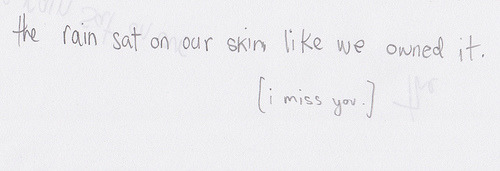 the rain sat on our skin like we owned it.
[i miss you.]